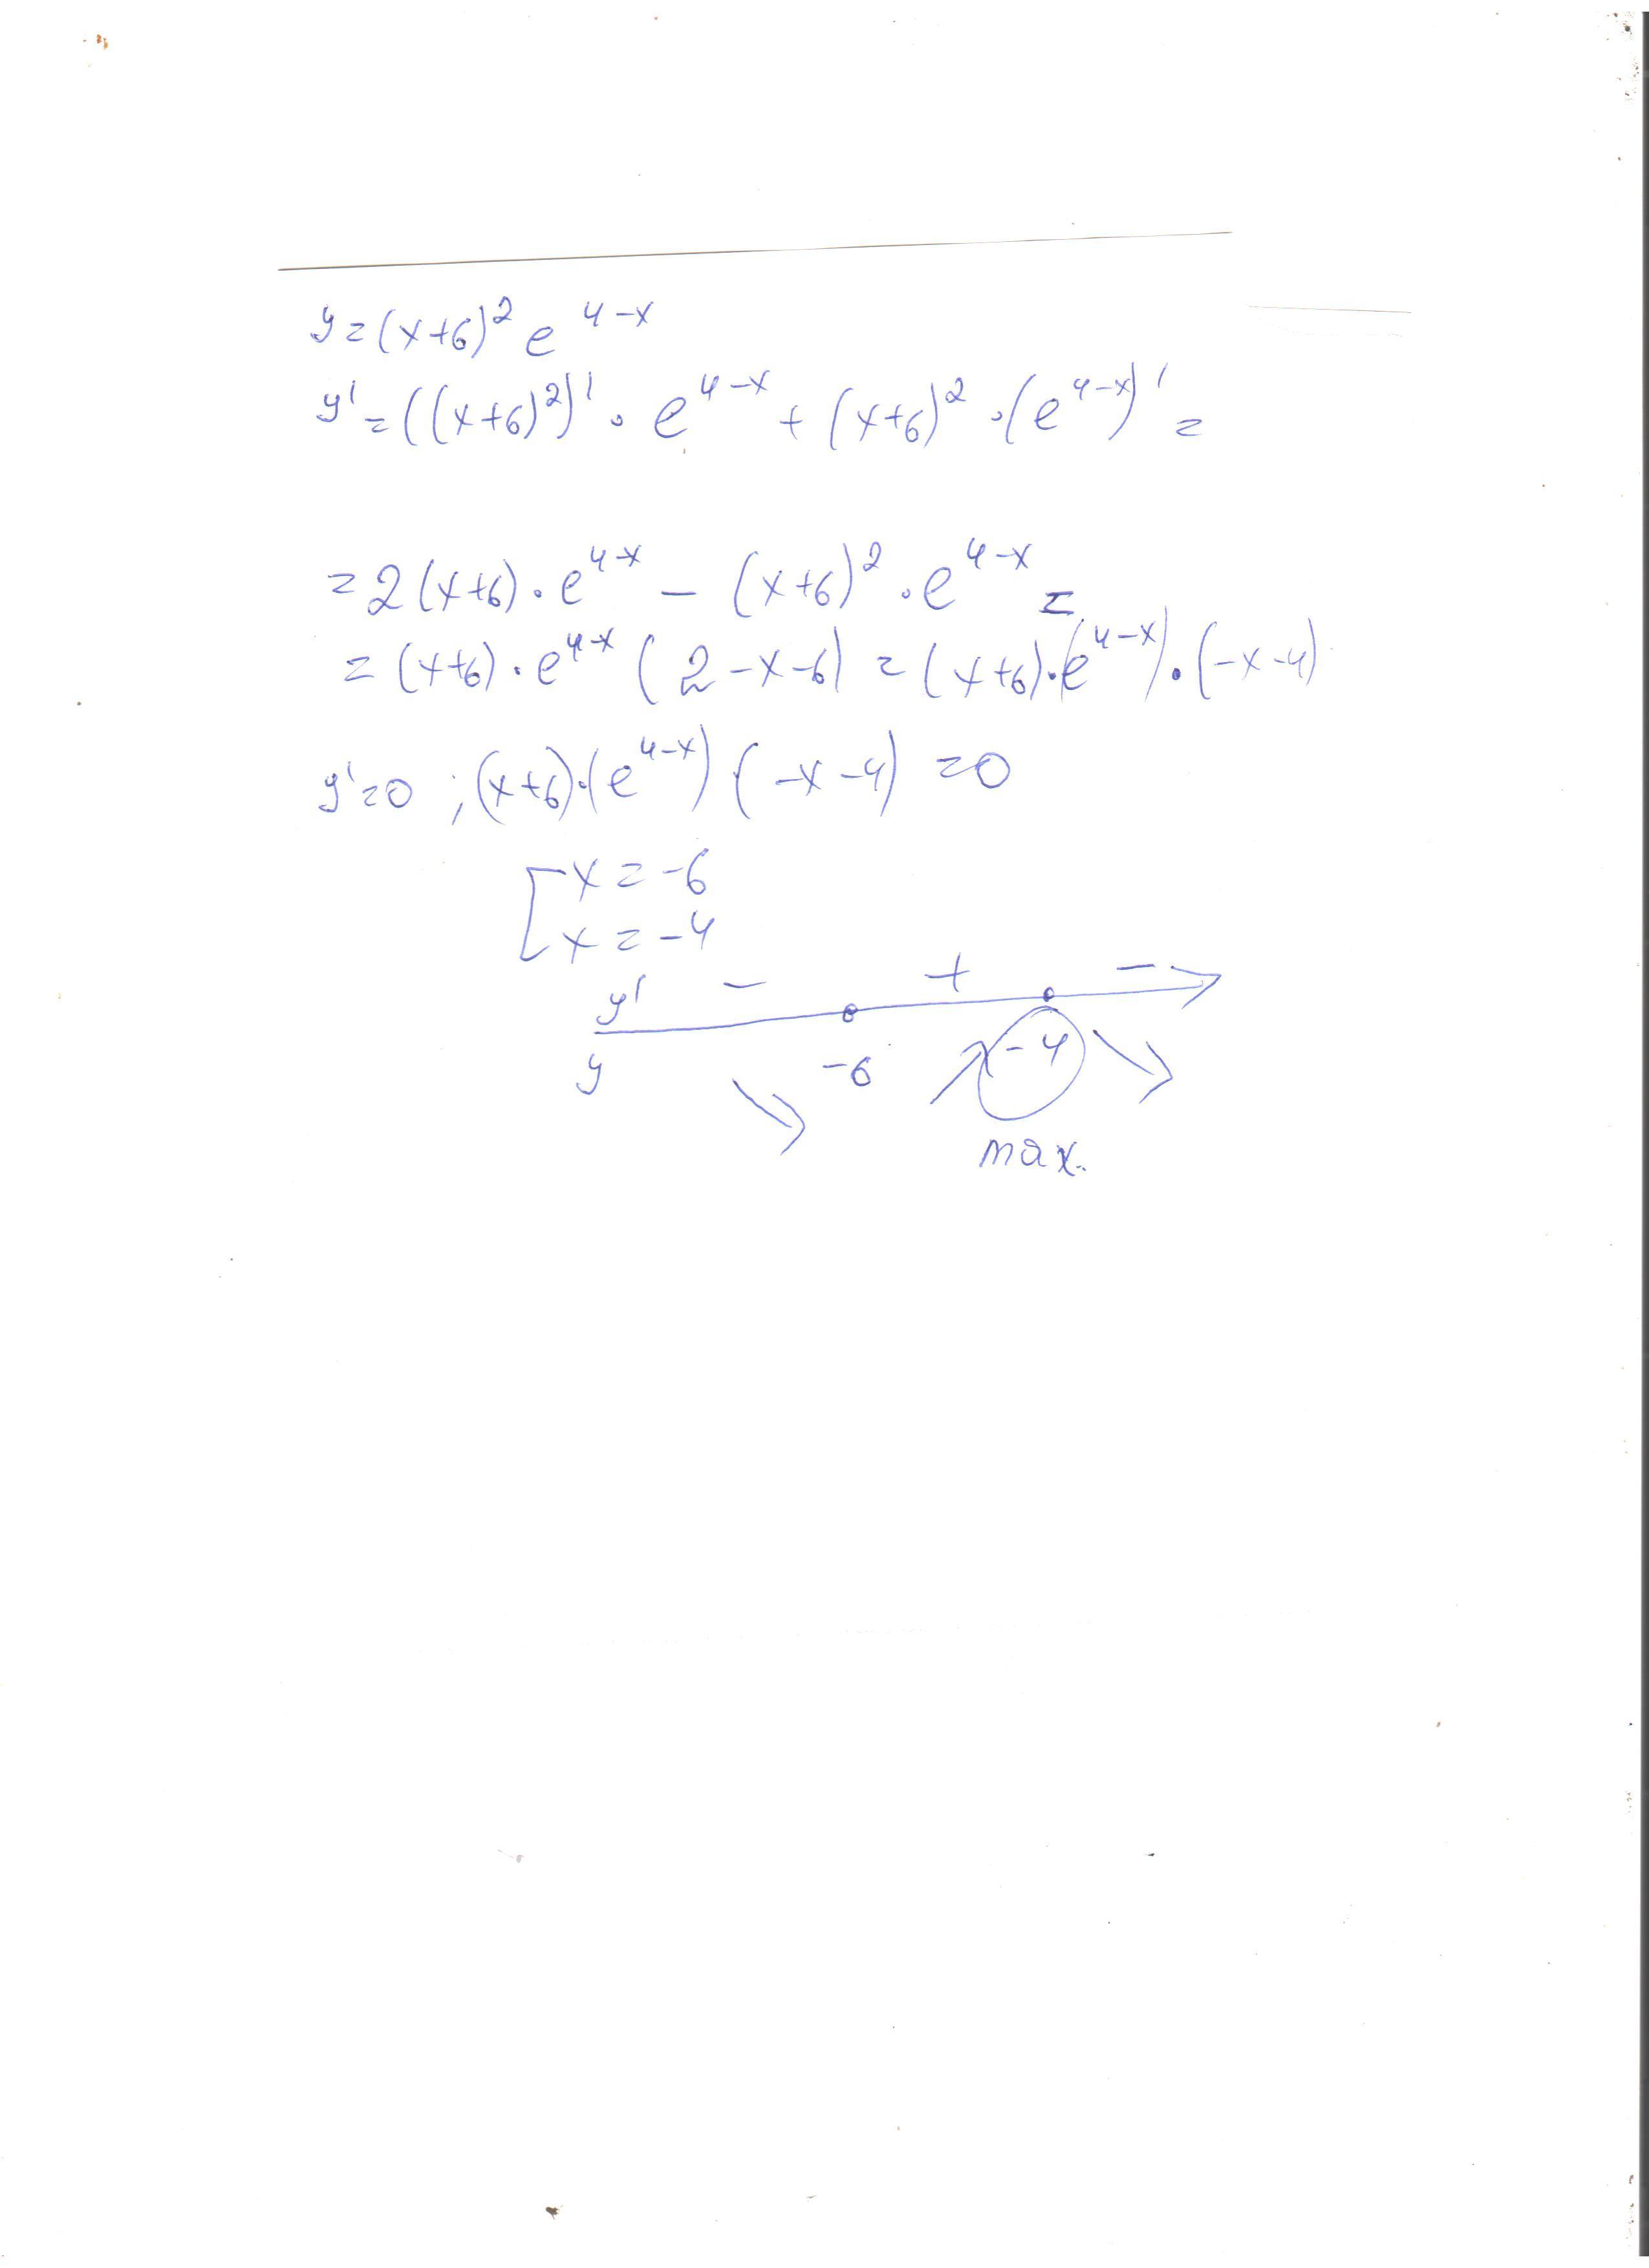 y=(x+6)² e^{4-x}
y'=((x+6)²)'·e^{4-x}+(x+6)²·(e^{4-x})'=
=2(x+6)·e^{4-x}-(x+6)²·e^{4-x}=
=(x+6)·e^{4-x}(2-x-6)=(x+6)·(e^{4-x})·(-x-4)
y'=0 ;(x+6)·(e^{4-x})(-x-4)=0
[x=-6
x=-4
y' - + -
y -6 -4
max.